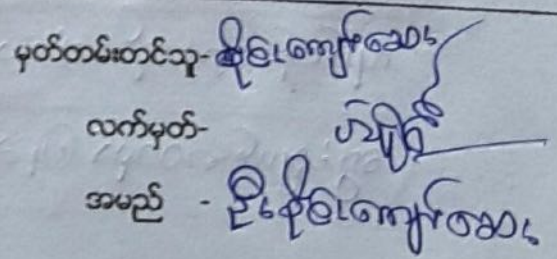 မှတ်တမ်းတင်သူ- စိုင်းကျော်ဆေး
လက်မှတ်-
အမည် - ဦးစိုင်းကျော်ဆေး